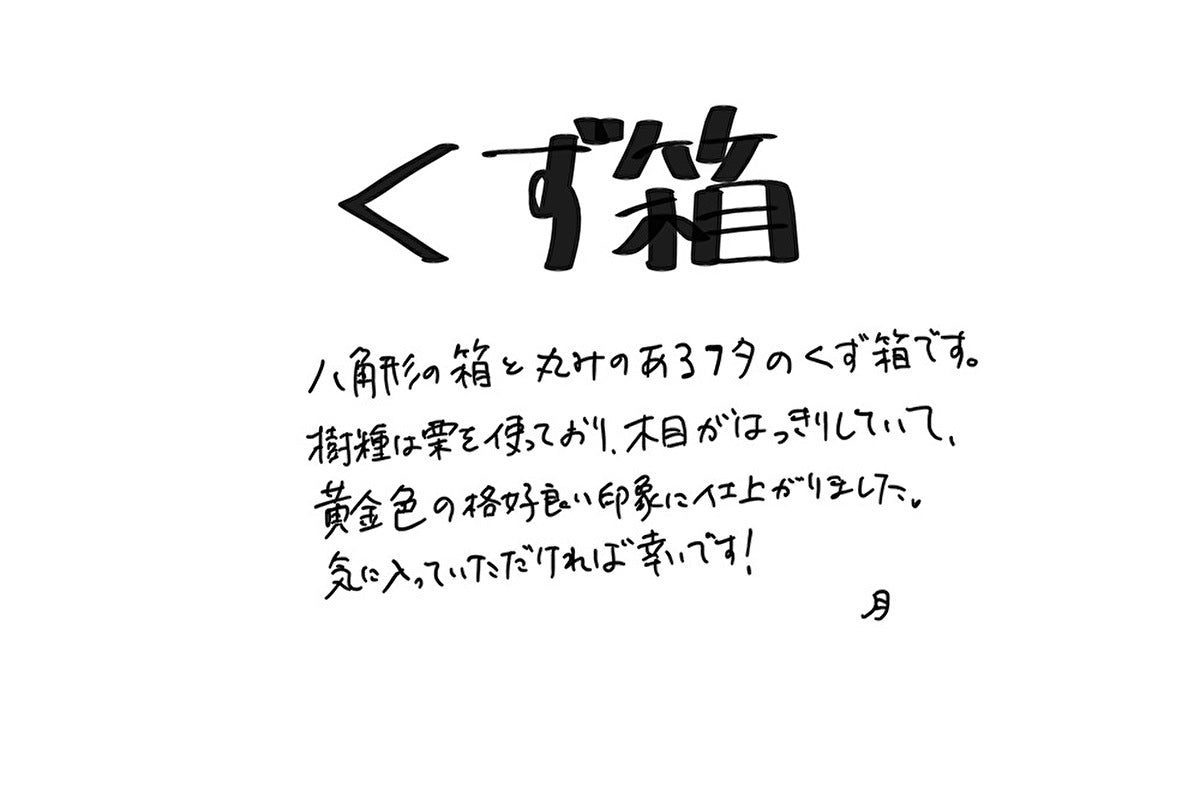 くず箱
八角形の箱と丸みのあるフタのくず箱です。
樹種は栗を使っており、木目がはっきりしていて、
黄金色の格好良い印象に仕上がりました。
気に入っていただければ幸いです!
月